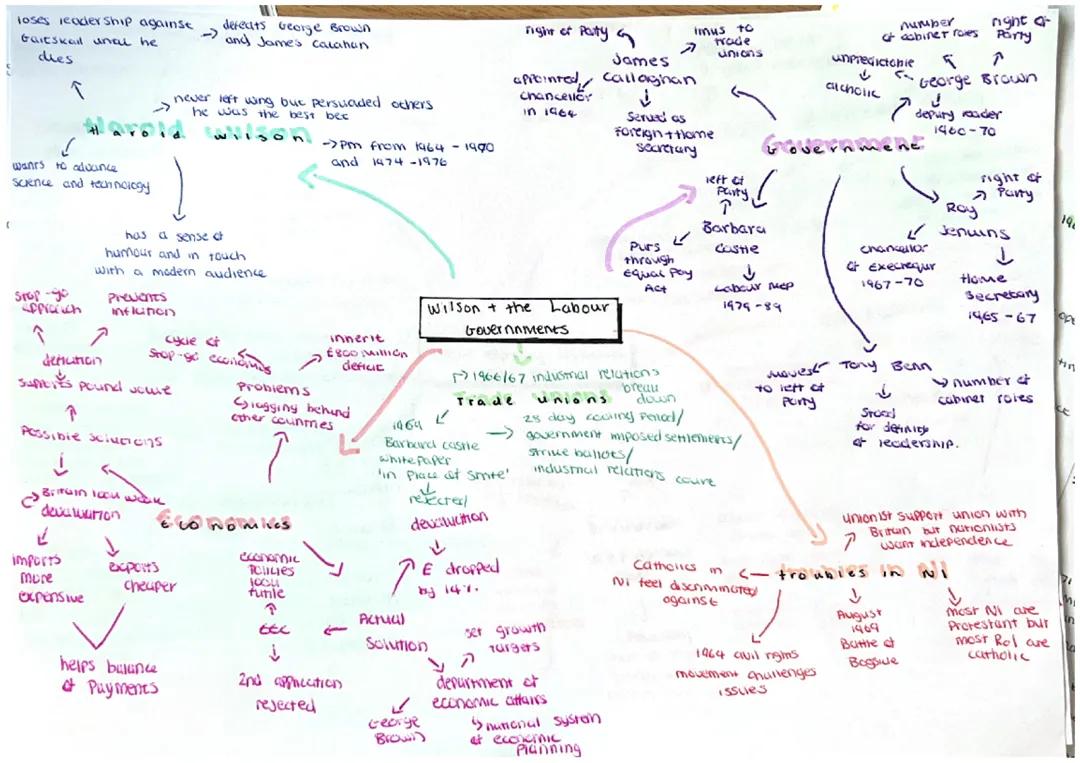 loses leadership against
Gaitskall until he
dies
defeats George Brown
and James Callahan
never left wing but persuaded others
he was the best bet
Harold Wilson
Pm from 1964 - 1970
and 1974 - 1976
wants to advance
science and technology
has a sense of
humour and in touch
with a modern audience
right of Party
links to
trade
unions
James
Callaghan
appointed
chancellor
in 1964
Served as
Foreign + Home
secretary
number
of cabinet roles
right of
Party
unpredictable
alcholic
George Brown
deputy leader
1960-70
Government
left of
Party
Barbara
Castle
Puts
through
Equal Pay
Act
Labour MEP
1979-89
right of
Party
Roy
Jenkins
chancellor
of exechequr
1967-70
Home
Secretary
1965-67
Tony Benn
moves
to left of
Party
Stood
for deputy
of leadership.
number of
cabinet roles
Wilson + the Labour
Governments
1966/67 industrial relations
break
down
Trade unions
1969
Barbara castle
whitepaper
'in Place of Strife'
rejected
28 day cooling Period/
government imposed settlements/
strike ballots/
industrial relations court
Stop-go
approach
Prevents
inflation
deflation
supports pound value
Possible solutions
Britain look weak
devaluation
imports
more
expensive
exports
cheaper
helps balance
of Payments
cycle of
Stop-go economics
inherit
£800 million
deficit
Problems
lagging behind
other countries
Economics
economic
Policies
look
futile
EEC
2nd application
rejected
Actual
Solution
devaluation
£ dropped
by 14%.
set growth
targets
department of
economic affairs
George
Brown
national system
of economic
Planning
troubles in NI
Unionist support union with
Britain but nationlists
want independence
Catholics in
NI feel discriminated
against
1964 civil rights
movement challenges
issues
August
1969
Battle of
Bogside
most NI are
Protestant but
most RoI are
catholic